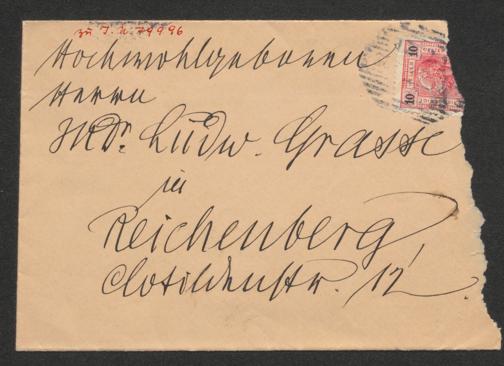 zu I. N. 79996
Hochwohlgeboren
Herrn
Ludw. Grasse
in
Reichenberg
Clotildenstr. 12
10
10